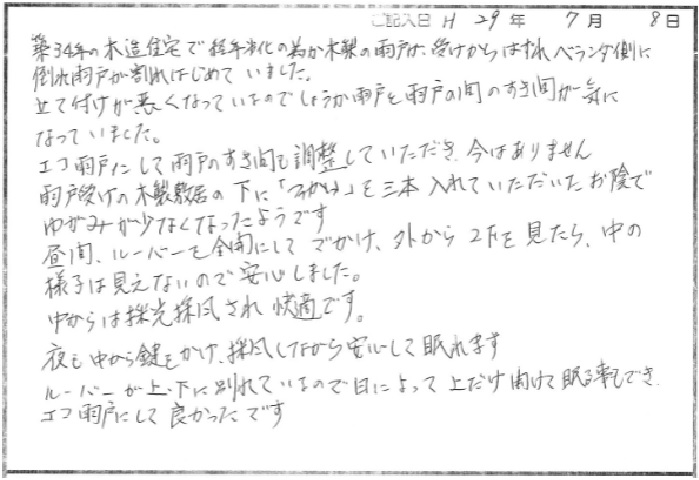 ご記入日 H 29年 7月 8日
築34年の木造住宅で経年劣化の為か木製の雨戸が、受けからはずれベランダ側に
倒れ雨戸が割れはじめていました。
立て付けが悪くなっていたのでしょうか雨戸と雨戸の間のすき間が気に
なっていました。
エコ雨戸にして雨戸のすき間も調整していただき、今はありません
雨戸受けの木製敷居の下に「つかい」を三本入れていただいたお陰で
ゆがみが少なくなったようです
昼間、ルーバーを全開にしてでかけ、外から2Fを見たら、中の
様子は見えないので安心しました。
中からは採光採風され快適です。
夜も中から鍵をかけ、採風しながら安心して眠れます
ルーバーが上・下に別れているので日によって上だけ開けて眠る事もでき、
エコ雨戸にして良かったです